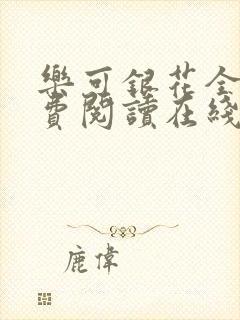 樂可銀花全
費閱讀在綫
鹿偉